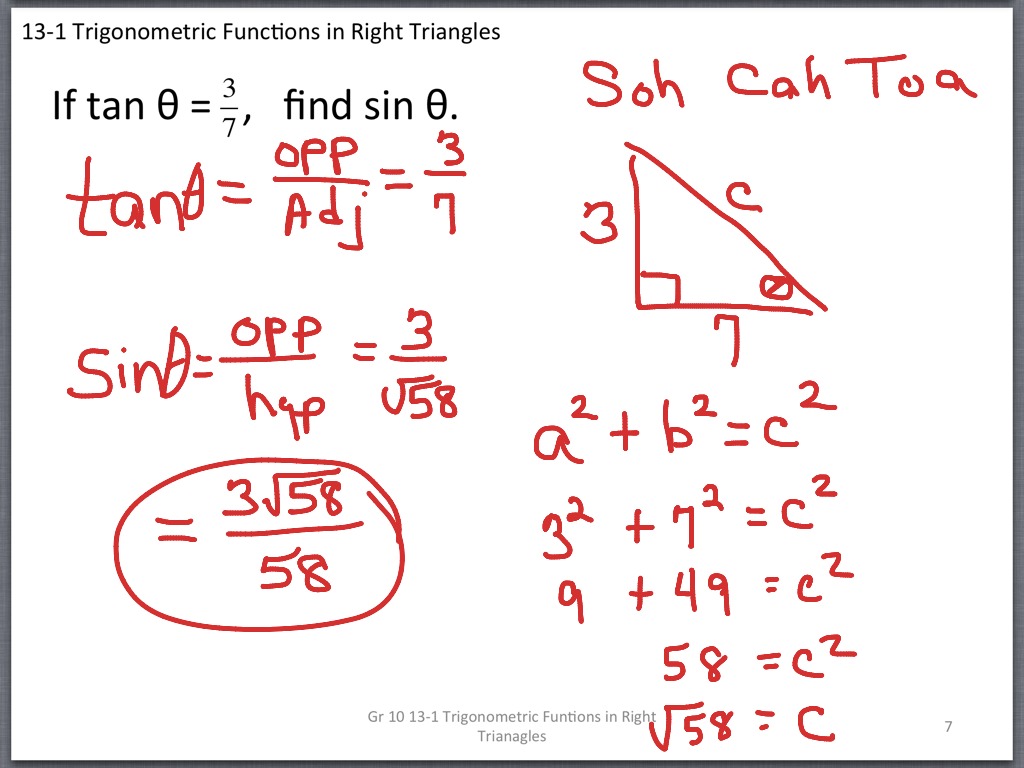 13-1 Trigonometric Functions in Right Triangles
Soh Cah Toa
If tan θ = 3/7, find sin θ.
tanθ = opp/Adj = 3/7
3
c
θ
7
sinθ = opp/hyp = 3/√58
= 3√58/58
a² + b² = c²
3² + 7² = c²
9 + 49 = c²
58 = c²
√58 = c
Gr 10 13-1 Trigonometric Funtions in Right
Trianagles
7